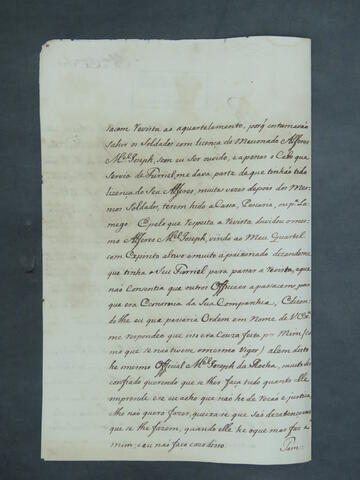 vacem revista ao aquartelamento, porq̃ costumavaõ
sahir os Soldados com licença do Mecionado Alferes
M.el Joseph, sem eu ser ouvido, e apenas o Cabo que
servio de Furriel, me dava parte de que tinhaõ tido
licença do seu Alferes, muitas vezes depois dos Mes-
mos Soldados, terem hido a Cassa, Pescaria, ou p.a La-
mego. E pelo que respeita a revista duvidou o mes-
mo Alferes M.el Joseph, vindo ao Meu Quartel
com Espirito altivo e muito apaixonado dizendome
que tinha o seu Furriel para passar a revista, e que
não Consentia que outros Officiaes a passacem por
que era Comenda da Sua Companhia, e dizen-
dolhe eu que passaria Ordem em Nome de V. Ex.a
me respondeu que isso era Couza feita por Mim (co
mo que se naõ tivese o mesmo vigor) alem disto
he o mesmo Official M.el Joseph da Rocha, muito des-
confiado querendo que se lhe faça tudo quanto elle
imprende e se eu acho que naõ he de razaõ e justiça,
lho naõ quero fazer, queixa-se que saõ dezatencoens
que se lhe fazem, quando elle he o que mas faz a
mim; e eu naõ faço cazo disso.
Tam-